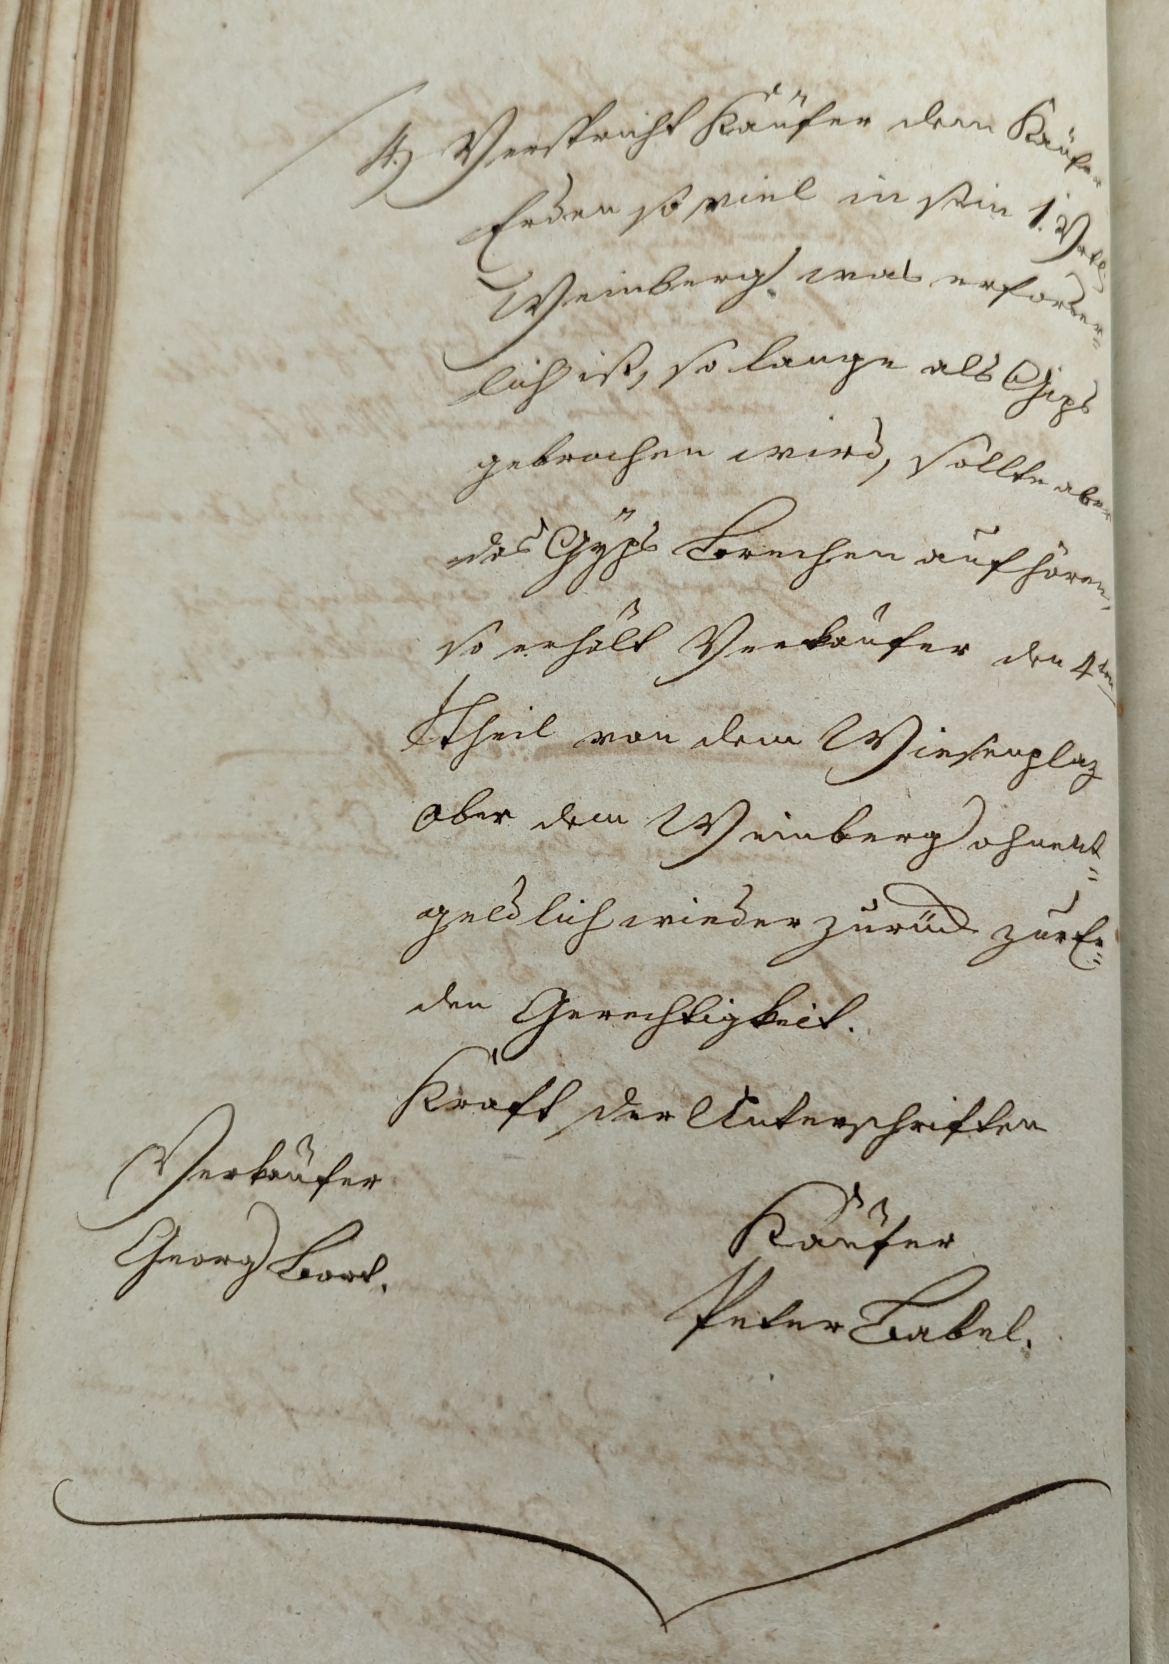 4) Verspricht Käufer dem Käufer
Erden so viel in sein 1. Vrtl.
Weinberg, was erforder=
lich ist, so lange als Gips
gebrochen wird, sollte aber
das Gÿps Brechen aufhören,
so erhält Verkäufer den 4ten
Theil von dem Wiesenplaz
ober dem Weinberg ohnent=
geldlich wieder zurück zur Er=
den Gerechtigkeit.
Kraft der Unterschriften
Verkäufer
Georg
Käufer
Peter Babel.